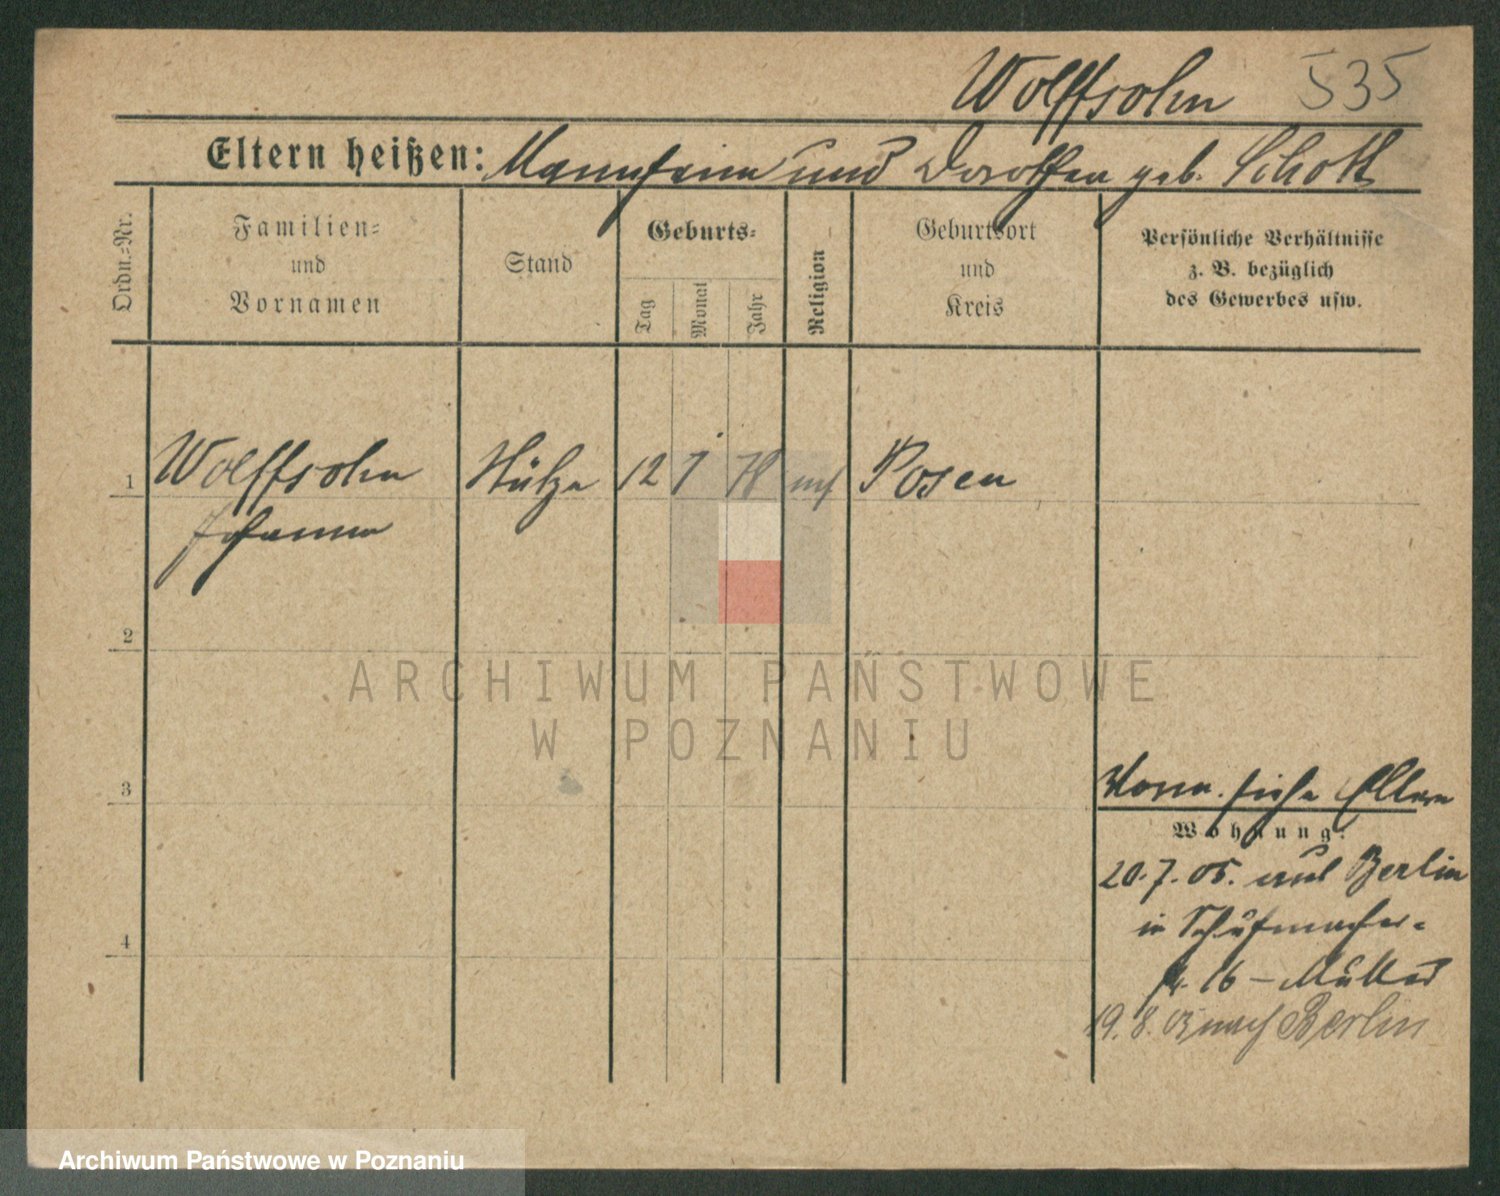 Wolffsohn 535
Eltern heißen: Mannheim und Dorothea geb. Schott
Ordn.-Nr.
Familien-
und
Vornamen
Stand
Geburts-
Tag
Monat
Jahr
Religion
Geburtsort
und
Kreis
Persönliche Verhältnisse
z. B. bezüglich
des Gewerbes usw.
1 Wolffsohn Stütze 12 7 78 Posen
Johanna
2
3
4
siehe Eltern
Wohnung:
20.7.05. aus Berlin
in Schuhmacher-
16 – Müller
19.8.05 nach Berlin
ARCHIWUM PAŃSTWOWE
W POZNANIU
Archiwum Państwowe w Poznaniu